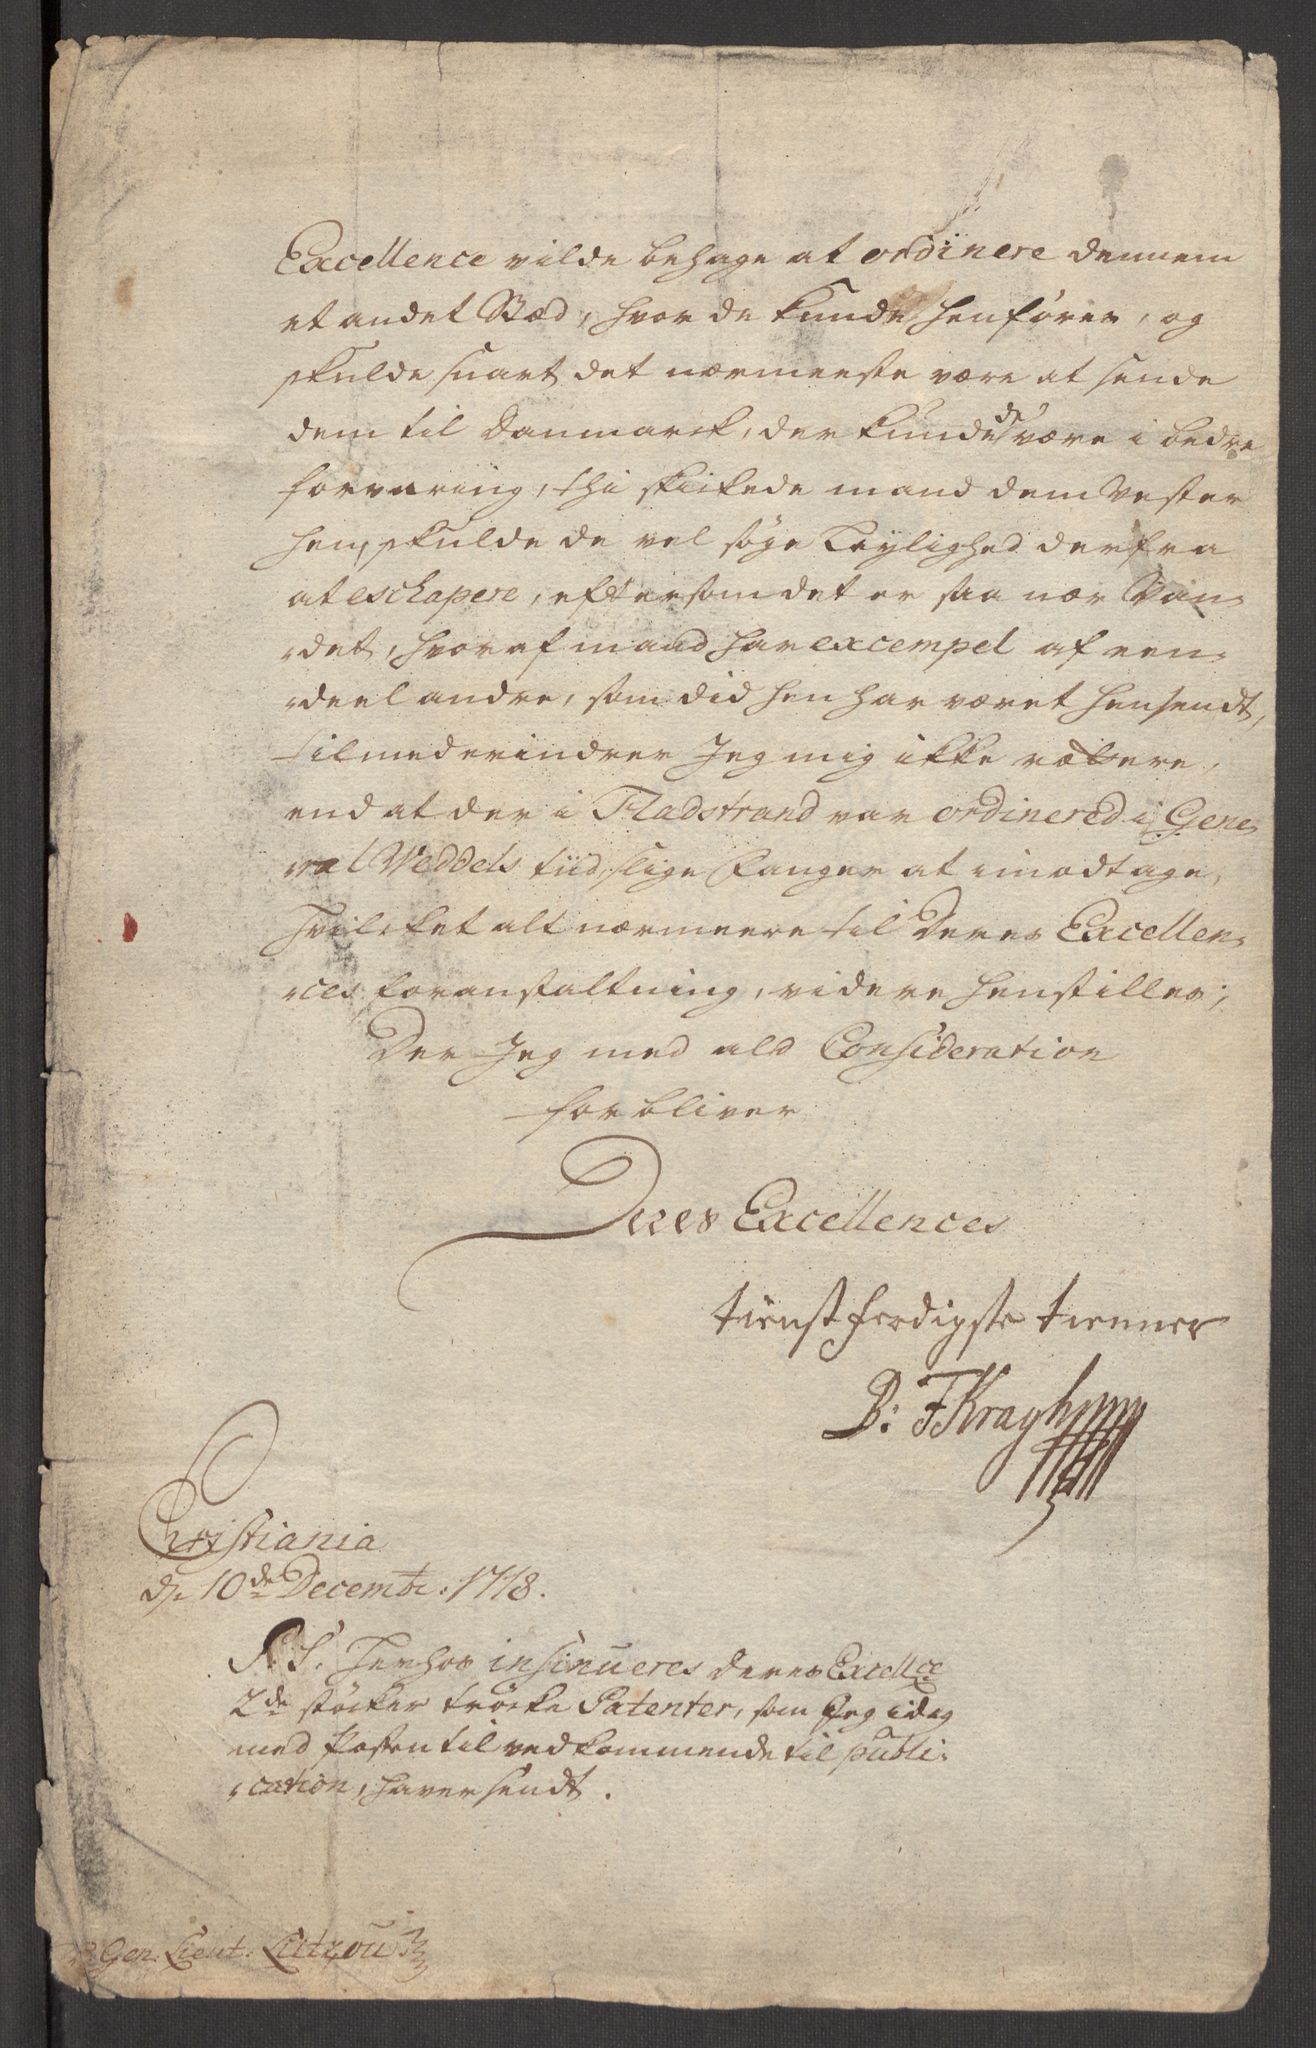 Excellence vilde behage at ordinere dennem
et andet Stæd, hvor de kunde henføres, og
skulde snart det nærmeeste være at sende
dem til Danmarck, der kunde de være i bedre
forvaring, thi skikede mand dem Vester
hen, skulde de vel søge Leylighed derfra
at eschapere, eftersom det er saa nær Van-
-det, hvoraf mand har excempel af een-
-deel andre, som did hen har været hensendt,
tilmed erindrer Jeg mig ikke rættere,
end at der i Fladstrand var ordinered i Gene-
ral Weddels tiid, slige Fanger at imodtage,
hvilcket alt nærmeere til Deres Excellen-
-ces foranstaltning, videre henstilles;
Der Jeg med ald Consideration
forbliver
Deres Excellences
tienstferdigste tienner
B: F Kragh
Christiania
d. 10de Decembr: 1718.
P. S. Herhos insinueres deres Excellce
2de støcker tröcke Patenter, som Jeg i dag
med Posten til vedkommende til publi-
-cation, haver sendt.
Gen. Lieut. Lützou